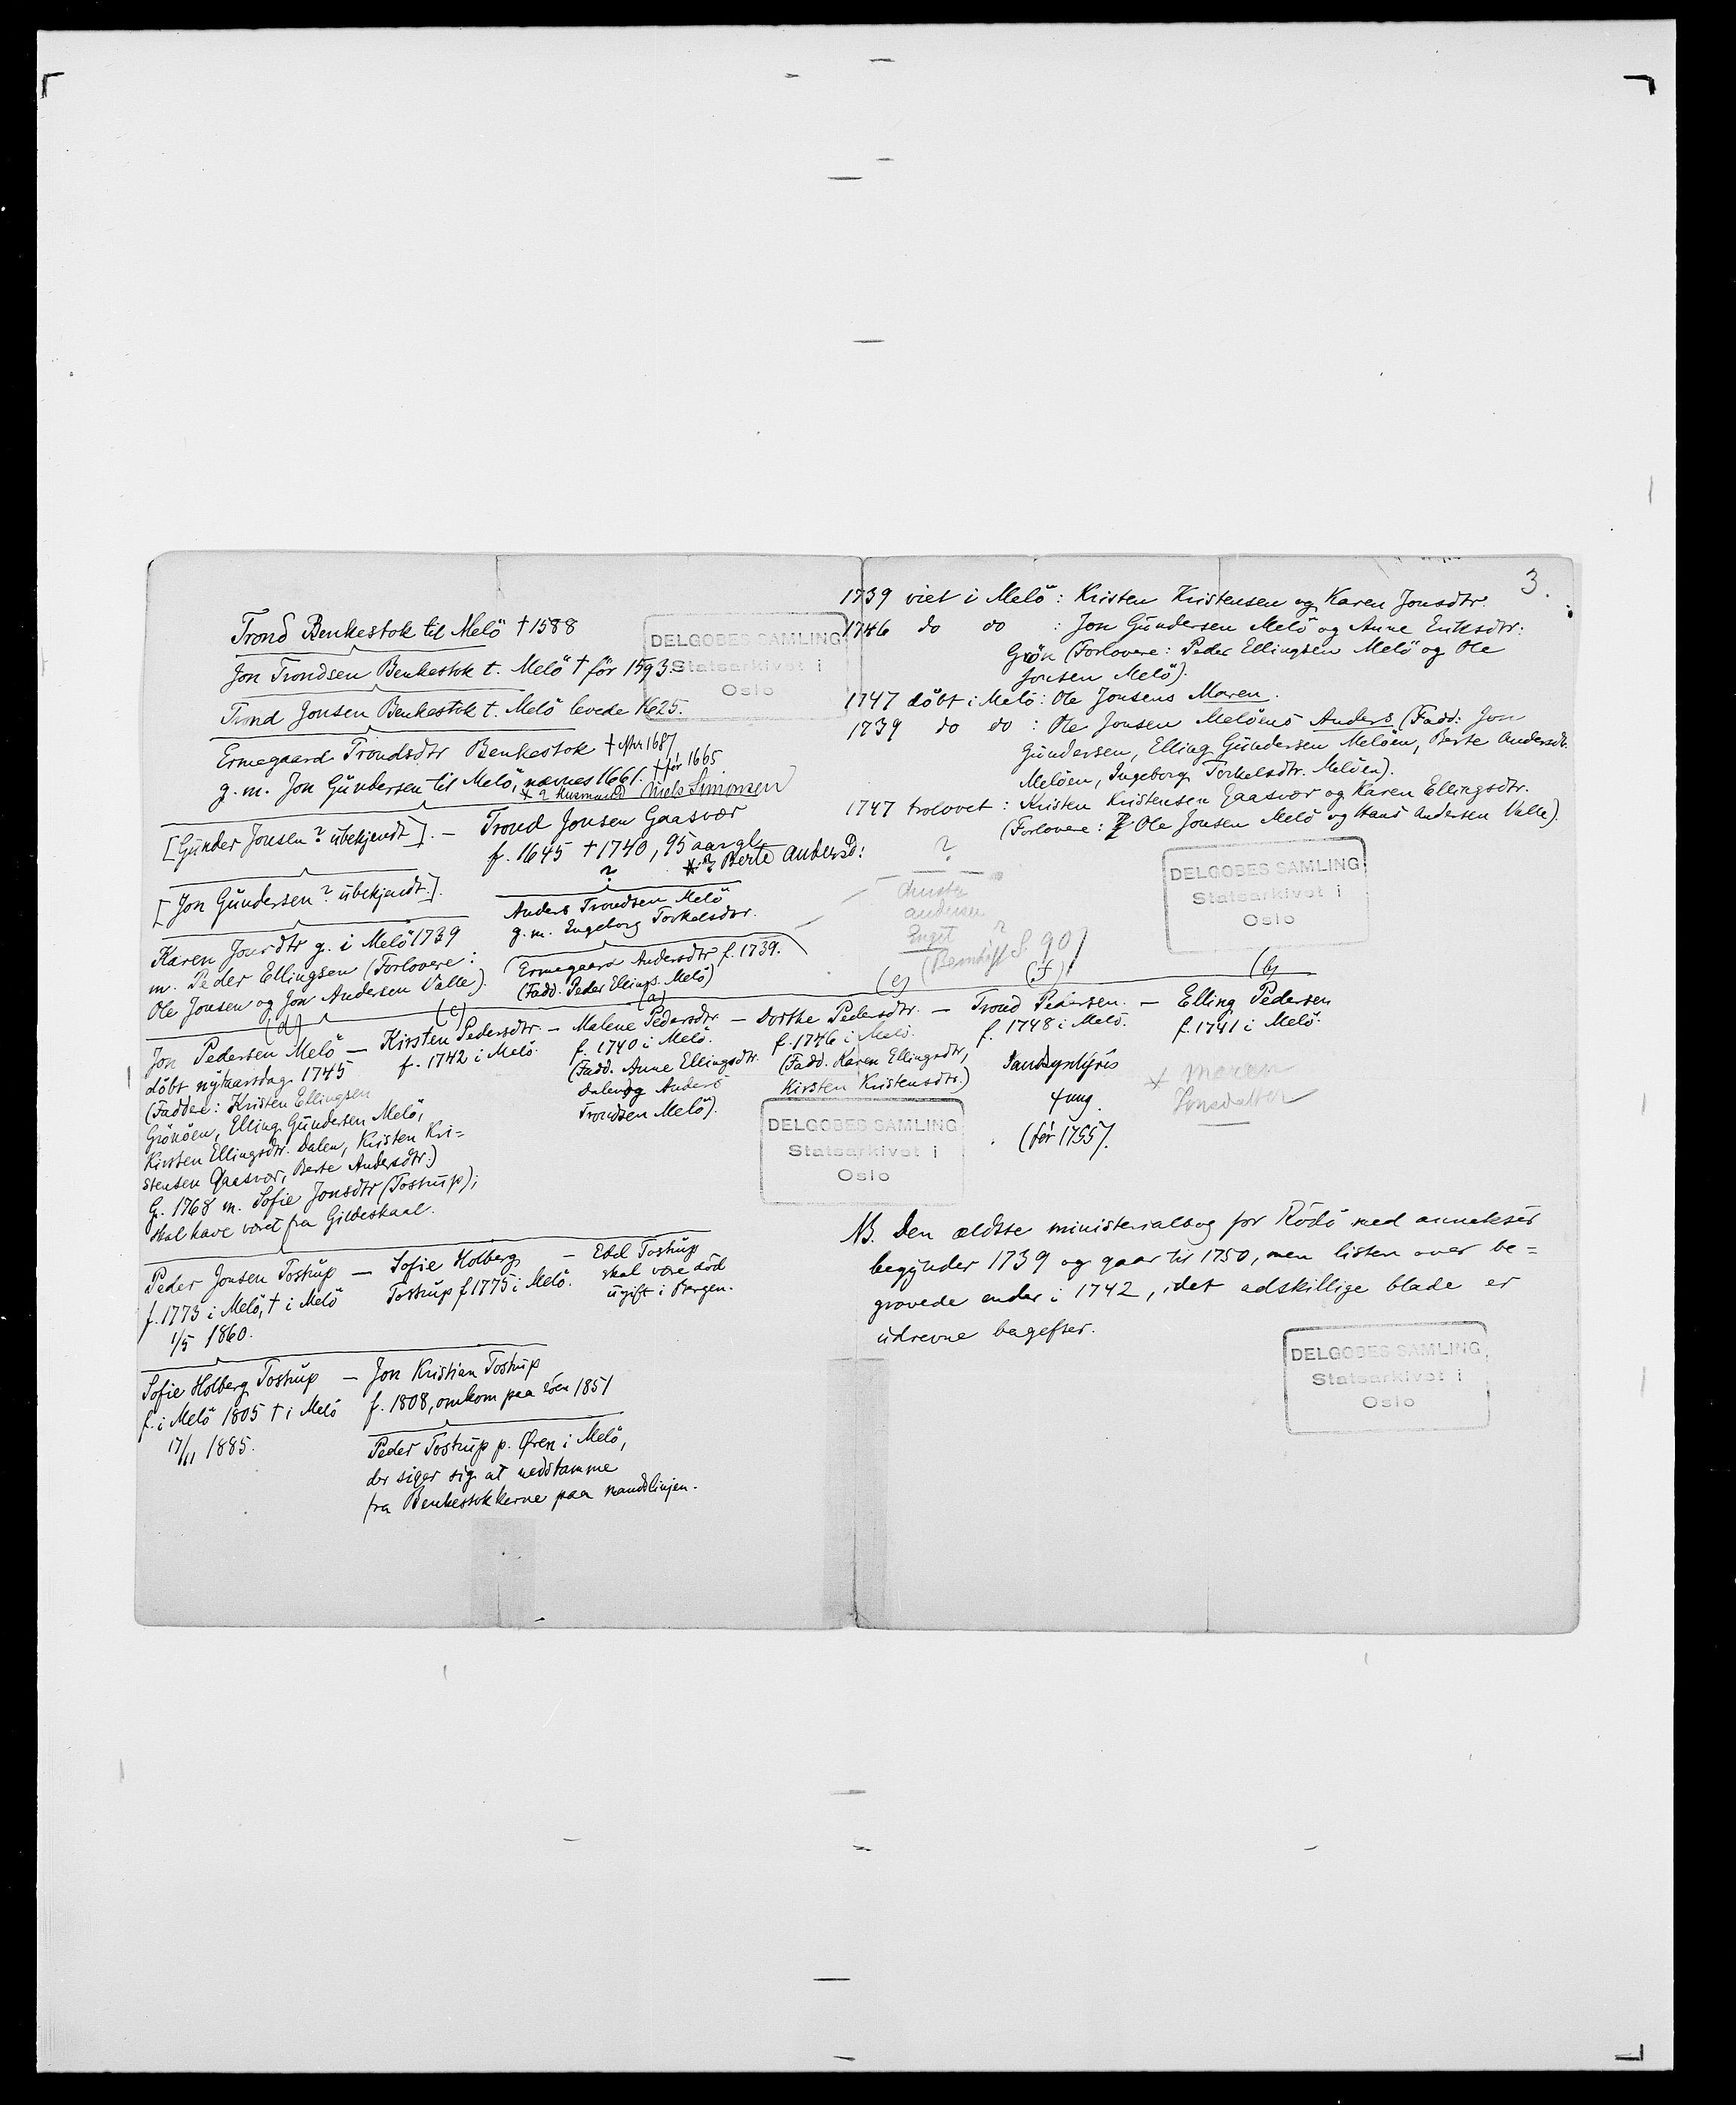 3.
Trond Benkestok til Melö † 1588
Jon Trondsen Benkestok t. Melö † för 1593.
Trond Jonsen Benkestok t. Melö levede 1625.
Ermegaard Trondsdtr Benkestok † efter 1687
g. m. Jon Gündersen til Melö, nævnes 1661. † för 1665
Niels Simonsen
[Günder Jonsen? übekjendt]. — Trond Jonsen Gaasvær
f. 1645 † 1740, 95 aar gl.
? Berte Andersd:
[Jon Gündersen? übekjendt.].
?
Anders Trondsen Melö
g. m. Engeborg Torkelsdtr.
Karen Jonsdtr g. i Melö 1739
m. Peder Ellingsen (Forlovere:
Ole Jonsen og Jon Andersen Valle)
Ermegaard Andersdtr f. 1739.
(Fadd. Peder Ellings. Melö)
(d) (c) (a) (e) (f) (b)
Jon Pedersen Melö — Kirsten Pedersdtr. — Malene Pedersdtr. — Dorthe Pedersdtr. — Trond Pedersen. — Elling Pedersen
döbt nytaarsdag 1745
(Faddere: Kristen Ellingsen
Grönöen, Elling Gündersen Melö,
Kirsten Ellingsdtr. Dalen, Kristen Kri=
stensen Gaasvær, Berte Andersdtr.)
G. 1768 m. Sofie Jonsdtr (Tostrup);
skal have været fra Gildeskaal.
f. 1742 i Melö.
f. 1740 i Melö.
(Fadd. Anne Ellingsdtr.
Dalen og Anders
Trondsen Melö).
f. 1746 i Melö.
(Fadd. Karen Ellingsdtr,
Kirsten Kristensdtr.)
f. 1748 i Melö.
Sandsynligvis
† ung.
(för 1755).
f. 1741 i Melö.
Maren
Jonsdatter
Peder Jonsen Tostrup — Sofie Holberg — Ebel Tostrup
f. 1773 i Melö, † i Melö
1/5 1860.
Tostrup f 1775 i Melö.
skal være död
ugift i Bergen.
Sofie Holberg Tostrup — Jon Kristian Tostrup
f. i Melö 1805 † i Melö
17/11 1885.
f. 1808, omkom paa söen 1851
Peder Tostrup p. Øren i Melö,
der siger sig at nedstamme
fra Benkestokkerne paa mandslinjen.
1739 viet i Melö: Kristen Kristensen og Karen Jonsdtr.
1746 do do : Jon Gündersen Melö og Anne Eriksdtr:
Grön (Forlovere: Peder Ellingsen Melö og Ole
Jonsen Melö).
1747 döbt i Melö: Ole Jonsens Maren.
1739 do do : Ole Jonsen Melöens Anders (Fadd: Jon
Gündersen, Elling Gündersen Melöen, Berte Andersdtr.
Melöen, Ingeborg Torkelsdtr. Melöen).
1747 trolovet : Kristen Kristensen Gaasvær og Karen Ellingsdtr.
(Forlovere: Ole Jonsen Melö og Hans Andersen Valle).
?
Andersen
S. 90
NB. Den ældste ministerialbog for Rödö med annekser
begynder 1739 og gaar til 1750, men listen over be=
gravede ender i 1742, idet adskillige blade er
udrevne bagefter.
DELGOBES SAMLING
Statsarkivet i
Oslo
DELGOBES SAMLING
Statsarkivet i
Oslo
DELGOBES SAMLING
Statsarkivet i
Oslo
DELGOBES SAMLING
Statsarkivet i
Oslo